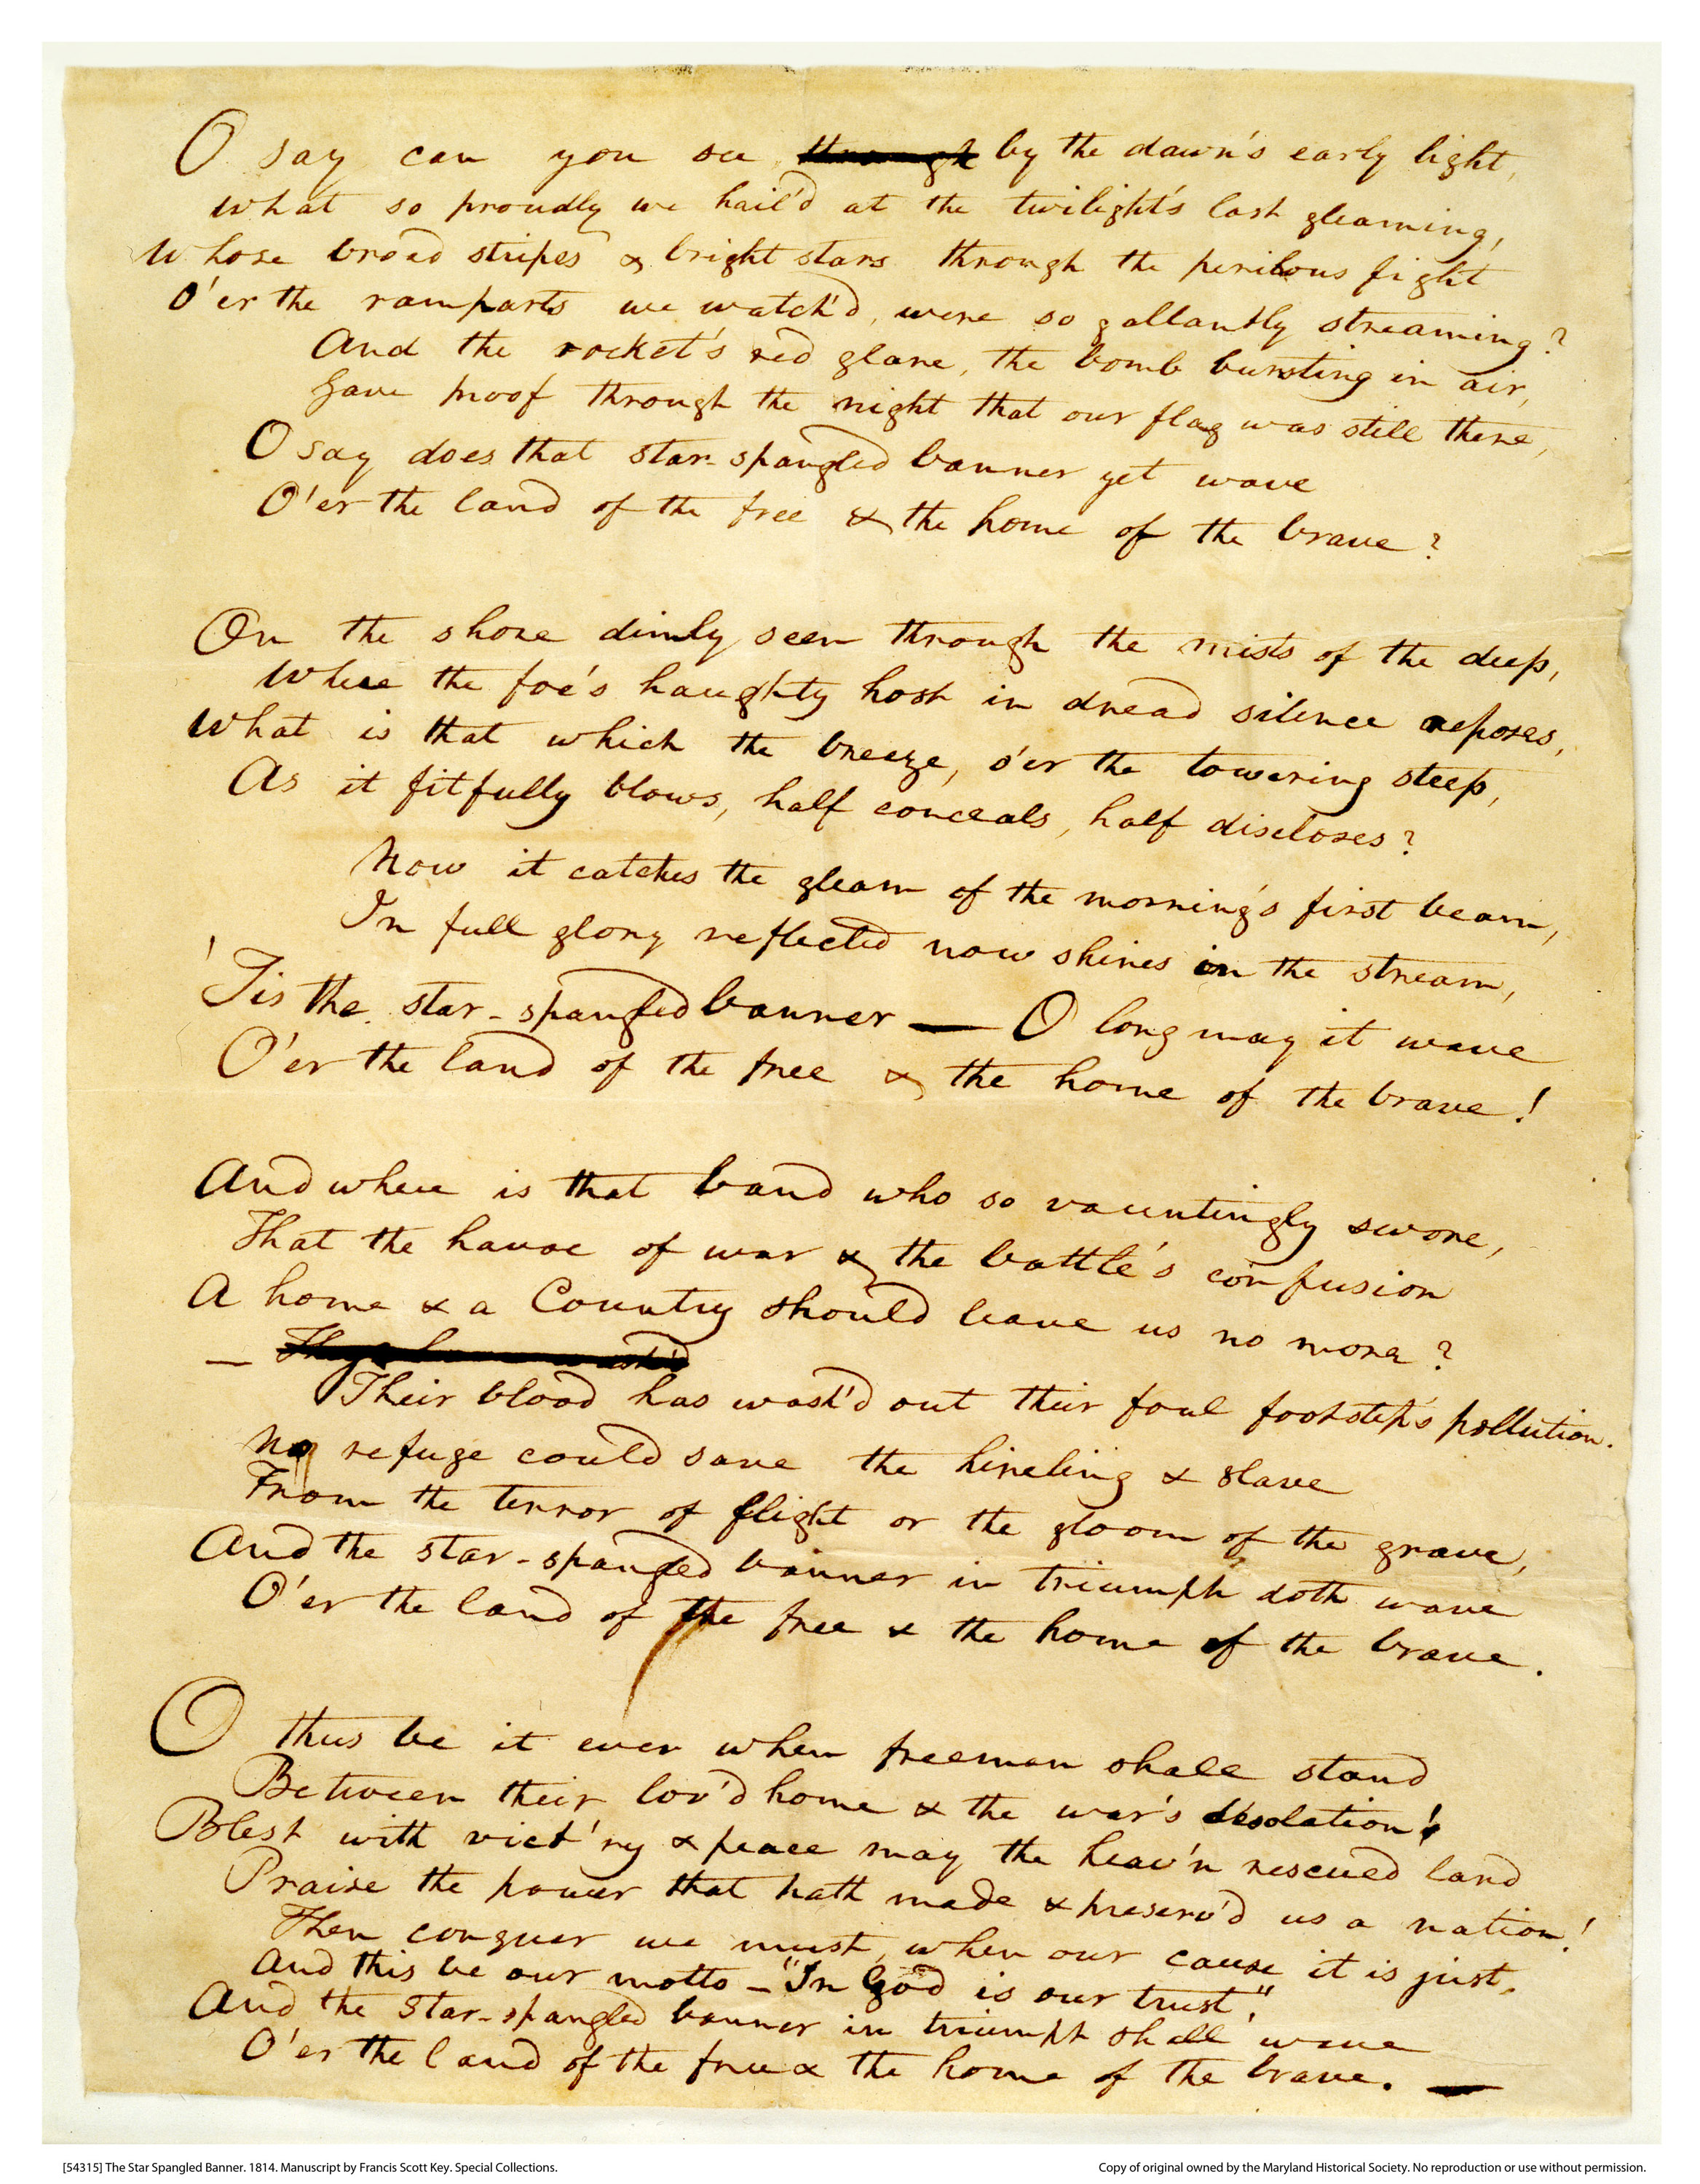 O say can you see through by the dawn's early light,
What so proudly we hail'd at the twilight's last gleaming,
Whose broad stripes & bright stars through the perilous fight
O'er the ramparts we watch'd, were so gallantly streaming?
And the rocket's red glare, the bomb bursting in air,
Gave proof through the night that our flag was still there,
O say does that star-spangled banner yet wave
O'er the land of the free & the home of the brave?
On the shore dimly seen through the mists of the deep,
Where the foe's haughty host in dread silence reposes,
What is that which the breeze, o'er the towering steep,
As it fitfully blows, half conceals, half discloses?
Now it catches the gleam of the morning's first beam,
In full glory reflected now shines in the stream,
'Tis the star-spangled banner — O long may it wave
O'er the land of the free & the home of the brave!
And where is that band who so vauntingly swore,
That the havoc of war & the battle's confusion
A home & a Country should leave us no more?
—
Their blood has wash'd out their foul footstep's pollution.
No refuge could save the hireling & slave
From the terror of flight or the gloom of the grave,
And the star-spangled banner in triumph doth wave
O'er the land of the free & the home of the brave.
O thus be it ever when freemen shall stand
Between their lov'd home & the war's desolation!
Blest with vict'ry & peace may the heav'n rescued land
Praise the power that hath made & preserv'd us a nation!
Then conquer we must, when our cause it is just,
And this be our motto — "In God is our trust."
And the star-spangled banner in triumph shall wave
O'er the land of the free & the home of the brave. —
[54315] The Star Spangled Banner. 1814. Manuscript by Francis Scott Key. Special Collections.
Copy of original owned by the Maryland Historical Society. No reproduction or use without permission.